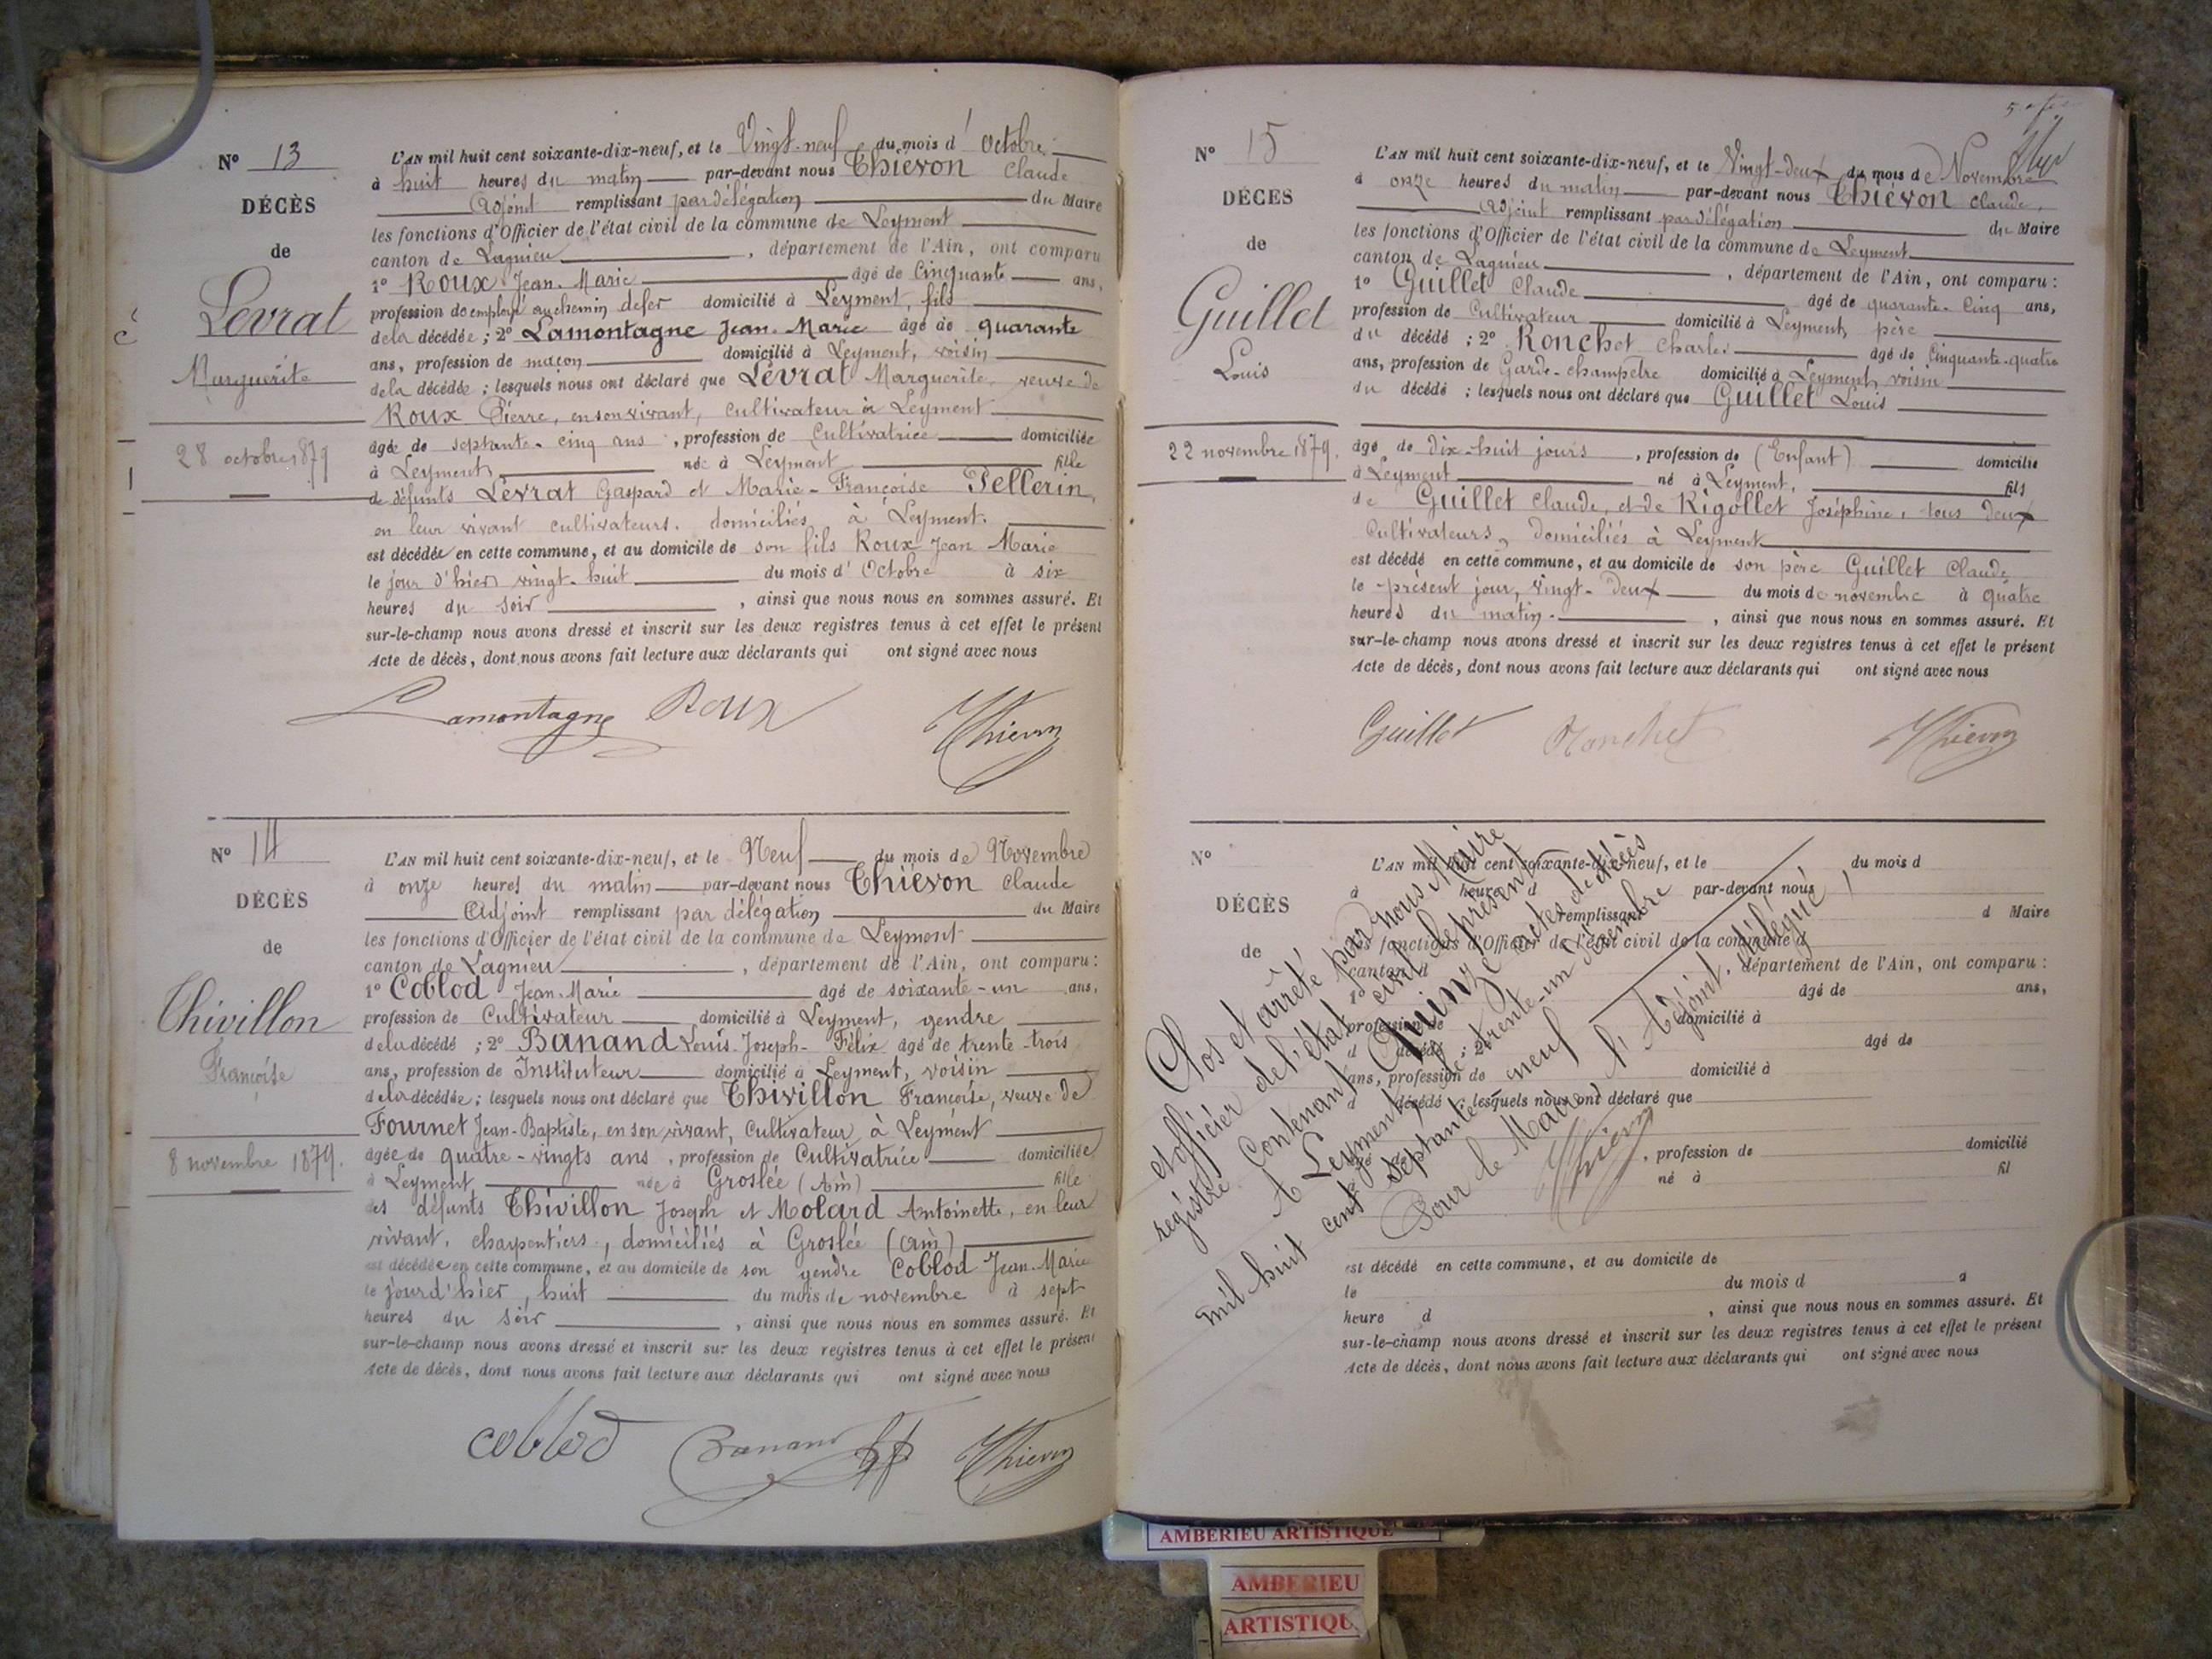 N° 13
DÉCÈS
de
Levrat
Marguerite
28 octobre 1879
L'AN mil huit cent soixante-dix-neuf, et le Vingt-neuf du mois d'Octobre
à huit heures du matin par-devant nous Thiévon Claude
Adjoint remplissant par délégation du Maire
les fonctions d'Officier de l'état civil de la commune de Leyment
canton de Lagnieu, département de l'Ain, ont comparu
1° Roux Jean-Marie âgé de Cinquante ans,
profession de employé au chemin de fer domicilié à Leyment, fils
de la décédée ; 2° Lamontagne Jean-Marie âgé de quarante
ans, profession de maçon domicilié à Leyment, voisin
de la décédée ; lesquels nous ont déclaré que Lévrat Marguerite, veuve de
Roux Pierre, en son vivant, cultivateur à Leyment
âgée de septante-cinq ans, profession de Cultivatrice domiciliée
à Leyment née à Leyment fille
de défunts Levrat Gaspard et Marie-Françoise Pellerin,
en leur vivant cultivateurs, domiciliés à Leyment.
est décédée en cette commune, et au domicile de son fils Roux Jean Marie
le jour d'hier vingt-huit du mois d'Octobre à six
heures du soir, ainsi que nous nous en sommes assuré. Et
sur-le-champ nous avons dressé et inscrit sur les deux registres tenus à cet effet le présent
Acte de décès, dont nous avons fait lecture aux déclarants qui ont signé avec nous
Lamontagne Roux Thievon
N° 14
DÉCÈS
de
Thivillon
Françoise
8 novembre 1879.
L'AN mil huit cent soixante-dix-neuf, et le Neuf du mois de Novembre
à onze heures du matin par-devant nous Thiévon Claude
Adjoint remplissant par délégation du Maire
les fonctions d'Officier de l'état civil de la commune de Leyment
canton de Lagnieu, département de l'Ain, ont comparu :
1° Coblod Jean-Marie âgé de soixante-un ans,
profession de Cultivateur domicilié à Leyment, gendre
de la décédé ; 2° Banand Louis-Joseph-Félix âgé de trente-trois
ans, profession de Instituteur domicilié à Leyment, voisin
de la décédée ; lesquels nous ont déclaré que Thivillon Françoise, veuve de
Fournet Jean-Baptiste, en son vivant, Cultivateur à Leyment
âgée de quatre-vingts ans, profession de Cultivatrice domiciliée
à Leyment née à Groslée (Ain) fille
des défunts Thivillon Joseph et Molard Antoinette, en leur
vivant, charpentiers, domiciliés à Groslée (Ain)
est décédée en cette commune, et au domicile de son gendre Coblod Jean-Marie
le jour d'hier, huit du mois de novembre à sept
heures du soir, ainsi que nous nous en sommes assuré. Et
sur-le-champ nous avons dressé et inscrit sur les deux registres tenus à cet effet le présent
Acte de décès, dont nous avons fait lecture aux déclarants qui ont signé avec nous
Coblod Banand Thievon
N° 15
DÉCÈS
de
Guillet
Louis
22 novembre 1879.
L'AN mil huit cent soixante-dix-neuf, et le Vingt-deux du mois de Novembre
à onze heures du matin par-devant nous Thiévon Claude,
Adjoint remplissant par délégation du Maire
les fonctions d'Officier de l'état civil de la commune de Leyment
canton de Lagnieu, département de l'Ain, ont comparu :
1° Guillet Claude âgé de quarante-cinq ans,
profession de Cultivateur domicilié à Leyment, père
du décédé ; 2° Ronchet Charles âgé de Cinquante-quatre
ans, profession de Garde-champêtre domicilié à Leyment, voisin
du décédé ; lesquels nous ont déclaré que Guillet Louis
âgé de dix-huit jours, profession de (Enfant) domicilié
à Leyment né à Leyment, fils
de Guillet Claude, et de Rigollet Joséphine, tous deux
Cultivateurs, domiciliés à Leyment
est décédé en cette commune, et au domicile de son père Guillet Claude
le présent jour, vingt-deux du mois de novembre à quatre
heures du matin, ainsi que nous nous en sommes assuré. Et
sur-le-champ nous avons dressé et inscrit sur les deux registres tenus à cet effet le présent
Acte de décès, dont nous avons fait lecture aux déclarants qui ont signé avec nous
Guillet Ronchet Thievon
N°
DÉCÈS
de
L'AN mil huit cent soixante-dix-neuf, et le du mois d
à heure d par-devant nous
remplissant d Maire
les fonctions d'Officier de l'état civil de la commune d
canton d département de l'Ain, ont comparu :
1° âgé de ans,
profession de domicilié à
d décédé ; 2° âgé de
ans, profession de domicilié à
d décédé ; lesquels nous ont déclaré que
âgé de , profession de domicilié
né à fil
est décédé en cette commune, et au domicile de
le du mois d à
heure d , ainsi que nous nous en sommes assuré. Et
sur-le-champ nous avons dressé et inscrit sur les deux registres tenus à cet effet le présent
Acte de décès, dont nous avons fait lecture aux déclarants qui ont signé avec nous
Clos et arrêté par nous Maire
et officier de l'état civil le présent
registre contenant Quinze actes de décès
A Leyment, le trente-un Décembre
mil huit cent septante neuf
Pour le Maire, l'Adjoint délégué,
Thievon
AMBERIEU ARTISTIQUE
AMBERIEU
ARTISTIQU